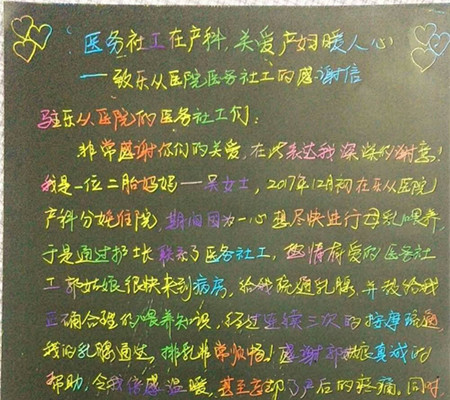 医务社工在产科，关爱产妇暖人心
——致乐从医院医务社工的感谢信
驻乐从医院的医务社工们：
非常感谢你们的关爱，在此表达我深深的谢意！
我是一位二胎妈妈——吴女士，2017年12月初在乐从医院
产科分娩住院，期间因为一心想尽快进行母乳喂养，
于是通过护士长联系了医务社工，热情有爱的医务社
工郭姑娘很快来到病房，给我疏通乳腺，并教给我
正确合理的喂养知识，经过连续三次的按摩疏通，
我的乳腺通达，排乳非常顺畅！感谢郭姑娘真诚的
帮助，令我倍感温暖，甚至忘却了产后的疼痛。同时，